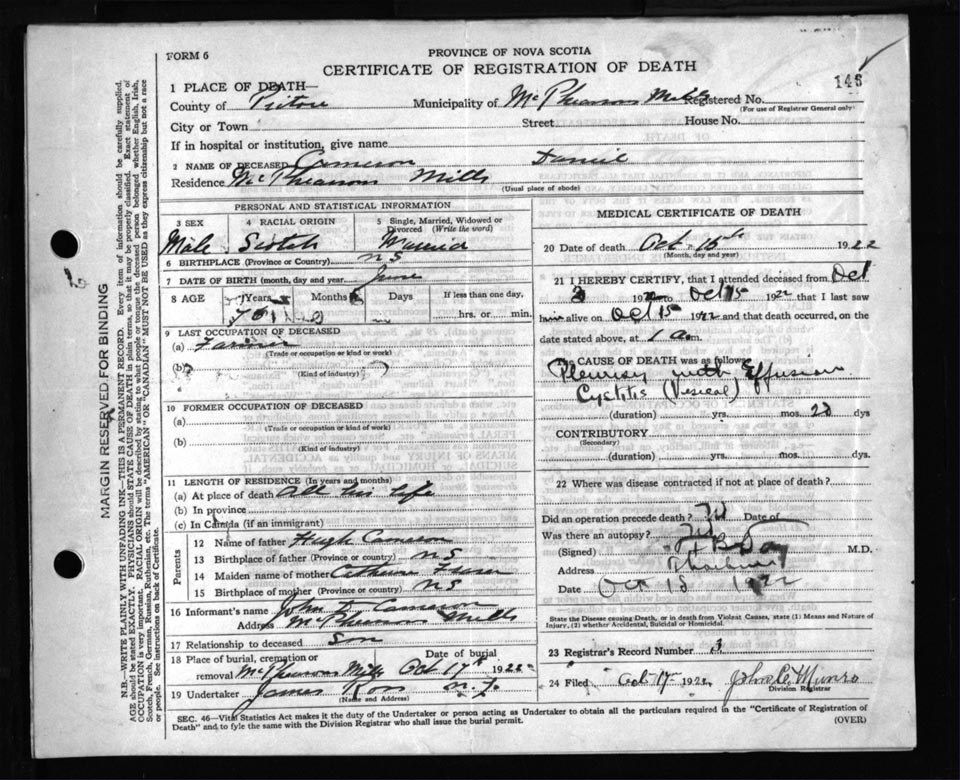 FORM 6
PROVINCE OF NOVA SCOTIA
CERTIFICATE OF REGISTRATION OF DEATH
146
1 PLACE OF DEATH—
County of Pictou Municipality of McPhearsons Mills Registered No.
(For use of Registrar General only)
City or Town Street House No.
If in hospital or institution, give name
2 NAME OF DECEASED Cameron Daniel
Residence McPhearsons Mills
(Usual place of abode)
PERSONAL AND STATISTICAL INFORMATION
3 SEX
Male
4 RACIAL ORIGIN
Scotch
5 Single, Married, Widowed or Divorced (Write the word)
Married
6 BIRTHPLACE (Province or Country) N S
7 DATE OF BIRTH (month, day and year) June
8 AGE Years Months Days If less than one day,
hrs. or min.
9 LAST OCCUPATION OF DECEASED
(a) Farmer
(Trade or occupation or kind or work)
(b)
(Kind of industry)
10 FORMER OCCUPATION OF DECEASED
(a)
(Trade or occupation or kind of work)
(b)
(Kind of industry)
11 LENGTH OF RESIDENCE (In years and months)
(a) At place of death All his life
(b) In province
(c) In Canada (if an immigrant)
Parents
12 Name of father Hugh Cameron
13 Birthplace of father (Province or country) N S
14 Maiden name of mother Catherine Fraser
15 Birthplace of mother (Province or country) N S
16 Informant's name John D Cameron
Address McPhersons Mills
17 Relationship to deceased Son
18 Place of burial, cremation or removal McPhersons Mills Date of burial Oct 17th 1922
19 Undertaker James Ross
(Name and Address)
MEDICAL CERTIFICATE OF DEATH
20 Date of death Oct 16th 1922
(Month, day and year)
21 I HEREBY CERTIFY, that I attended deceased from Oct
3 1922 to Oct 15 1922 that I last saw
him alive on Oct 15 1922 and that death occurred, on
date stated above, at 1 a m.
The CAUSE OF DEATH was as follows
Pleurisy with Effusion
Cystitis (Vesical)
(duration) yrs. mos. 20 dys
CONTRIBUTORY
(Secondary)
(duration) yrs. mos. dys.
22 Where was disease contracted if not at place of death?
Did an operation precede death? No Date of
Was there an autopsy? No
(Signed) Day M.D.
Address
Date Oct 18 1922
State the Disease causing Death, or in death from Violent Causes, state (1) Means and Nature of Injury, (2) whether Accidental, Suicidal or Homicidal.
23 Registrar's Record Number 3
24 Filed Oct 17 1922 John C. Munro
Division Registrar
SEC. 46—Vital Statistics Act makes it the duty of the Undertaker or person acting as Undertaker to obtain all the particulars required in the "Certificate of Registration of
Death" and to fyle the same with the Division Registrar who shall issue the burial permit.
(OVER)
MARGIN RESERVED FOR BINDING
N.B.—WRITE PLAINLY WITH UNFADING INK—THIS IS A PERMANENT RECORD. Every item of information should be carefully supplied.
AGE should be stated EXACTLY. PHYSICIANS should STATE CAUSE OF DEATH in plain terms, so that it may be properly classified. Exact statement of
OCCUPATION is very important. RACIAL ORIGIN will be described by stating to what people or tongue the deceased person belonged whether English, Irish,
Scotch, French, German, Russian, Ruthenian, etc. The terms "AMERICAN" OR "CANADIAN" MUST NOT BE USED as they express citizenship but not a race
or people. See instructions on back of Certificate.